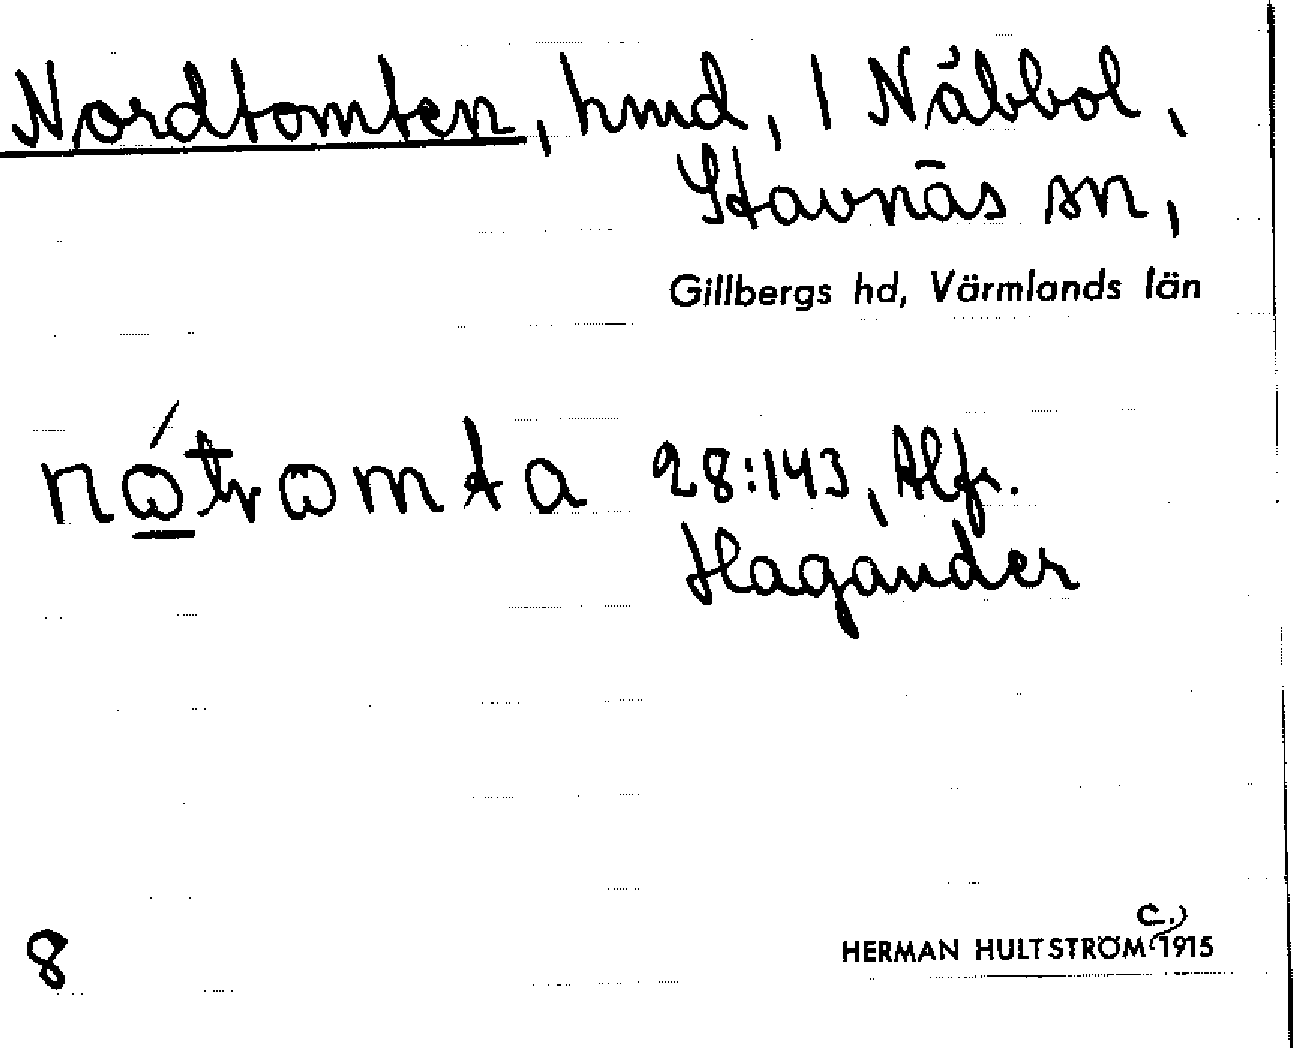 Nordtomten, hmd, 1 Näbbol,
Stavnäs sn,
Gillbergs hd, Värmlands län
28:143, Alfr.
Hagander
8
c.
HERMAN HULTSTRÖM 1915